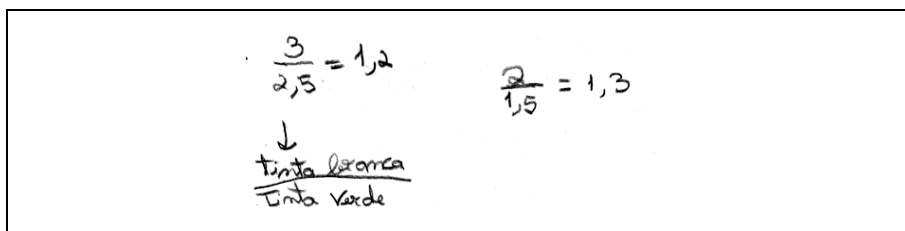 3/2,5 = 1,2
2/1,5 = 1,3
↓
tinta branca
Tinta Verde